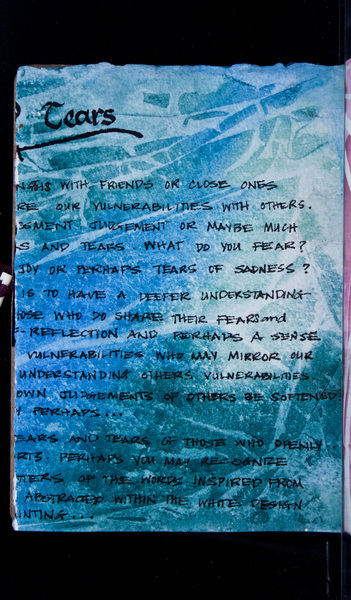 Tears
WITH FRIENDS OR CLOSE ONES
RE OUR VULNERABILITIES WITH OTHERS.
SSMENT, JUDGEMENT OR MAYBE MUCH
S AND TEARS. WHAT DO YOU FEAR?
JOY OR PERHAPS TEARS OF SADNESS?
IS TO HAVE A DEEPER UNDERSTANDING
HOSE WHO DO SHARE THEIR FEARS and
F-REFLECTION AND PERHAPS A SENSE
VULNERABILITIES WHO MAY MIRROR OUR
UNDERSTANDING OTHERS VULNERABILITIES.
OWN JUDGEMENTS OF OTHERS BE SOFTENED?
Y PERHAPS...
EARS AND TEARS OF THOSE WHO OPENLY
RTS. PERHAPS YOU MAY RECOGNIZE
TTERS OF THE WORDS INSPIRED FROM
ABSTRACTED WITHIN THE WHITE DESIGN
INTING...